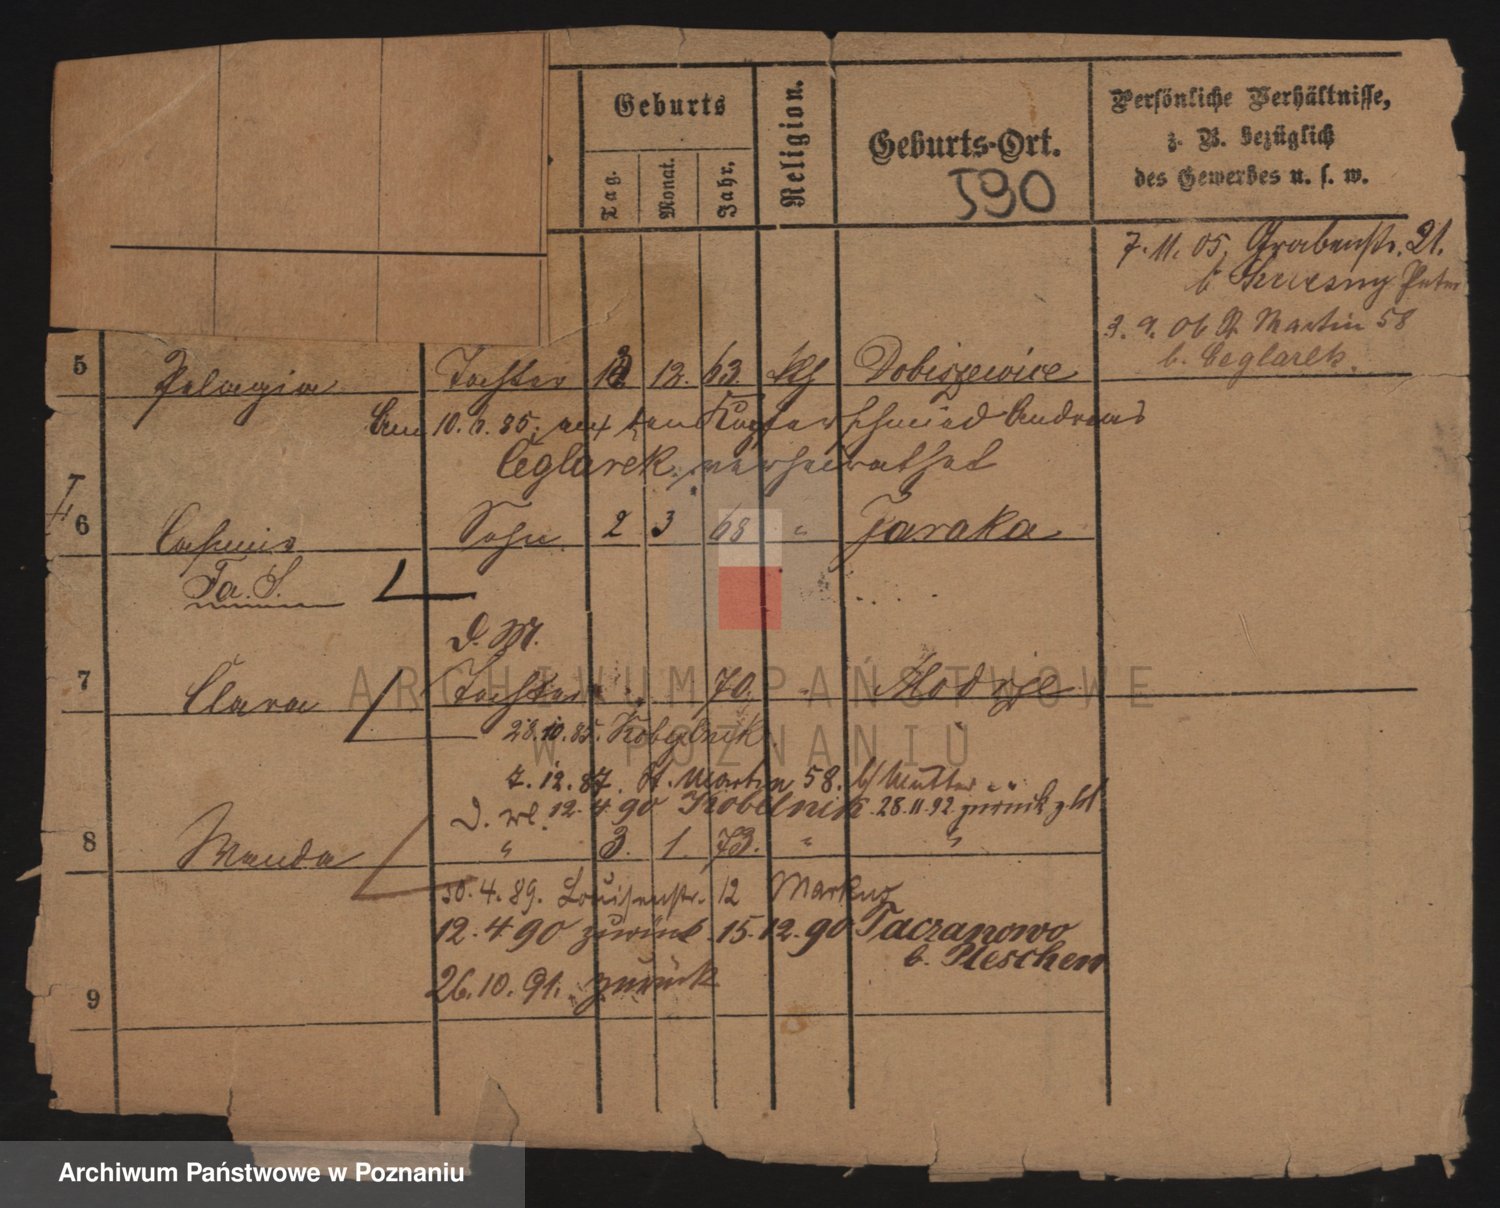 Geburts
Tag.
Monat.
Jahr.
Religion.
Geburts-Ort.
590
Persönliche Verhältnisse,
z. B. bezüglich
des Gewerbes u. s. w.
7. 11. 05, Grabenstr. 21.
b Peter
3. 9. 06 St Martin 58
b. Ceglarek.
5 Pelagia Tochter 12. 63. kth Dobiszewice
Am 10. 85. mit dem Kupferschmied Andreas
Ceglarek verheirathet
6 Casimir Sohn 2 3 68 " Jaraka
D. M.
7 Clara Tochter 70. " Modrze
28.10.85. Kobylnik.
7. 12. 87. St. Martin 58. b/ Mutter
D. 12. 4. 90 Kobelnik. 28. 11. 92 zurück
8 Wanda " 3. 1. 73. " "
30. 4. 89. Louisenstr. 12
12. 4. 90 zurück. 15. 12. 90 Taczanowo
b. Pleschen
26. 10. 91. zurück
9
ARCHIWUM PAŃSTWOWE
W POZNANIU
Archiwum Państwowe w Poznaniu